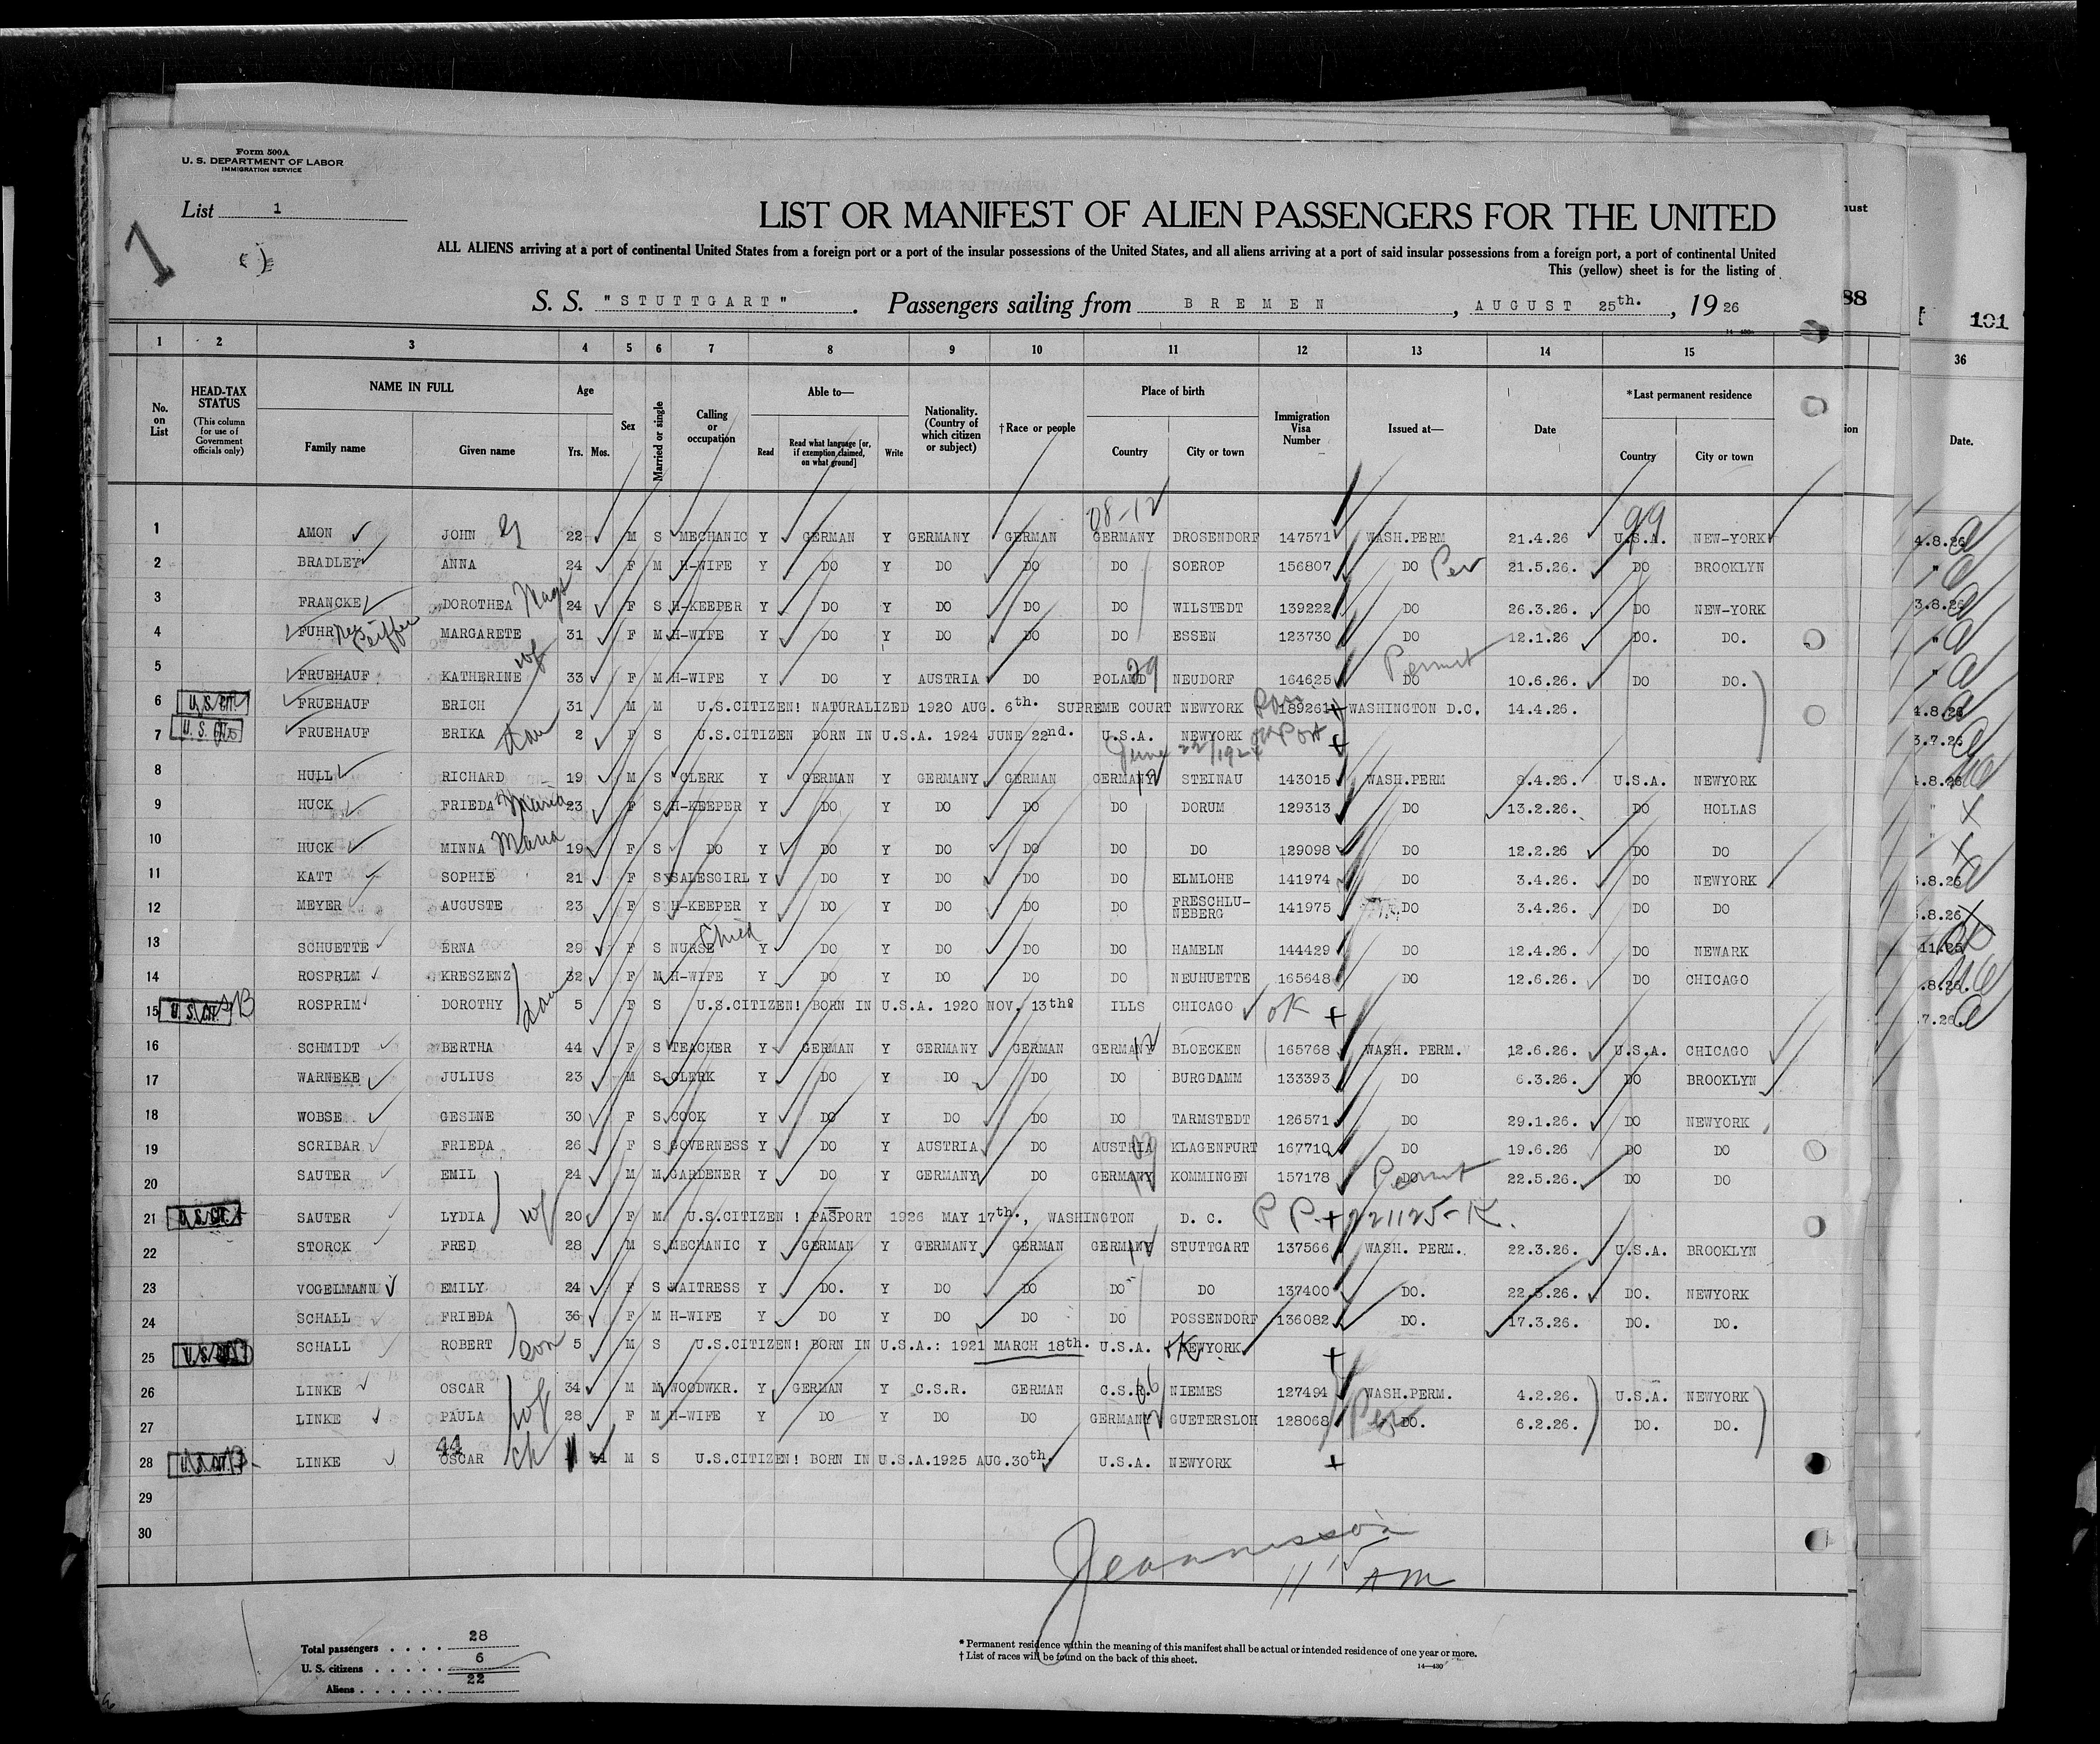 Form 500A
U. S. DEPARTMENT OF LABOR
IMMIGRATION SERVICE
List 1
1
LIST OR MANIFEST OF ALIEN PASSENGERS FOR THE UNITED
ALL ALIENS arriving at a port of continental United States from a foreign port or a port of the insular possessions of the United States, and all aliens arriving at a port of said insular possessions from a foreign port, a port of continental United
This (yellow) sheet is for the listing of
S. S. "STUTTGART". Passengers sailing from BREMEN, AUGUST 25th., 1926
88
101
1 2 3 4 5 6 7 8 9 10 11 12 13 14 15 36
No. on List
HEAD-TAX STATUS
(This column for use of Government officials only)
NAME IN FULL
Family name Given name
Age
Yrs. Mos.
Sex
Married or single
Calling or occupation
Able to—
Read
Read what language [or, if exemption claimed, on what ground]
Write
Nationality. (Country of which citizen or subject)
†Race or people
Place of birth
Country City or town
Immigration Visa Number
Issued at—
Date
*Last permanent residence
Country City or town
Date.
08-12 99
1 AMON JOHN 22 M S MECHANIC Y GERMAN Y GERMANY GERMAN GERMANY DROSENDORF 147571 WASH.PERM 21.4.26 U.S.A. NEW-YORK
2 BRADLEY ANNA 24 F M H-WIFE Y DO Y DO DO DO SOEROP 156807 DO Per 21.5.26. DO BROOKLYN
3 FRANCKE DOROTHEA 24 F S H-KEEPER Y DO Y DO DO DO WILSTEDT 139222 DO 26.3.26. DO NEW-YORK
4 FUHR Peiffer MARGARETE 31 F M H-WIFE Y DO Y DO DO DO ESSEN 123730 DO 12.1.26 DO. DO.
5 FRUEHAUF KATHERINE wf 33 F M H-WIFE Y DO Y AUSTRIA DO POLAND 29 NEUDORF 164625 DO Permit 10.6.26. DO DO.
6 U.S. CIT. FRUEHAUF ERICH 31 M M U.S.CITIZEN! NATURALIZED 1920 AUG. 6th. SUPREME COURT NEWYORK 189261 WASHINGTON D.C. 14.4.26.
7 U.S. CIT. FRUEHAUF ERIKA dau 2 F S U.S.CITIZEN BORN IN U.S.A. 1924 JUNE 22nd. U.S.A. NEWYORK
June 22/1924
8 HULL RICHARD 19 M S CLERK Y GERMAN Y GERMANY GERMAN GERMANY 12 STEINAU 143015 WASH.PERM 8.4.26. U.S.A. NEWYORK
9 HUCK FRIEDA 23 F S H-KEEPER Y DO Y DO DO DO DORUM 129313 DO 13.2.26. DO HOLLAS
10 HUCK MINNA Maria 19 F S DO Y DO Y DO DO DO DO 129098 DO 12.2.26 DO DO
11 KATT SOPHIE 21 F S SALESGIRL Y DO Y DO DO DO ELMLOHE 141974 DO 3.4.26. DO NEWYORK
12 MEYER AUGUSTE 23 F S H-KEEPER Y DO Y DO DO DO FRESCHLU-NEBERG 141975 DO 3.4.26. DO DO
13 SCHUETTE ERNA 29 F S NURSE Child Y DO Y DO DO DO HAMELN 144429 DO 12.4.26. DO NEWARK
14 ROSPRIM KRESZENZ 32 F M H-WIFE Y DO Y DO DO DO NEUHUETTE 165648 DO 12.6.26. DO CHICAGO
15 U.S. CIT. ROSPRIM DOROTHY dau 5 F S U.S.CITIZEN! BORN IN U.S.A. 1920 NOV. 13th. ILLS CHICAGO OK
16 SCHMIDT BERTHA 44 F S TEACHER Y GERMAN Y GERMANY GERMAN GERMANY 12 BLOECKEN 165768 WASH. PERM. 12.6.26. U.S.A. CHICAGO
17 WARNEKE JULIUS 23 M S CLERK Y DO Y DO DO DO BURGDAMM 133393 DO 6.3.26. DO BROOKLYN
18 WOBSE GESINE 30 F S COOK Y DO Y DO DO DO TARMSTEDT 126571 DO 29.1.26. DO NEWYORK
19 SCRIBAR FRIEDA 26 F S GOVERNESS Y DO Y AUSTRIA DO AUSTRIA KLAGENFURT 167710 DO 19.6.26 DO DO
20 SAUTER EMIL 24 M M GARDENER Y DO Y GERMANY DO GERMANY KOMMINGEN 157178 DO Permit 22.5.26. DO DO
21 U.S. CIT. SAUTER LYDIA wf 20 F M U.S.CITIZEN ! PASPORT 1926 MAY 17th., WASHINGTON D. C. P P. 221125-K.
22 STORCK FRED 28 M S MECHANIC Y GERMAN Y GERMANY GERMAN GERMANY 12 STUTTGART 137566 WASH. PERM. 22.3.26. U.S.A. BROOKLYN
23 VOGELMANN EMILY 24 F S WAITRESS Y DO. Y DO DO DO DO 137400 DO. 22.3.26. DO. NEWYORK
24 SCHALL FRIEDA 36 F M H-WIFE Y DO Y DO DO DO POSSENDORF 136082 DO. 17.3.26. DO. DO.
25 U.S. CIT. SCHALL ROBERT son 5 M S U.S.CITIZEN! BORN IN U.S.A.: 1921 MARCH 18th. U.S.A. NEWYORK
26 LINKE OSCAR 34 M M WOODWKR. Y GERMAN Y C.S.R. GERMAN C.S.R. NIEMES 127494 WASH.PERM. 4.2.26. U.S.A. NEWYORK
27 LINKE PAULA wf 28 F M H-WIFE Y DO Y DO DO GERMANY 12 GUETERSLOH 128068 DO. Per 6.2.26. DO. DO.
44
28 U.S. CIT. LINKE OSCAR ch 11 M S U.S.CITIZEN! BORN IN U.S.A.1925 AUG.30th. U.S.A. NEWYORK
29
30
11 15 AM
Total passengers 28
U. S. citizens 6
Aliens 22
* Permanent residence within the meaning of this manifest shall be actual or intended residence of one year or more.
† List of races will be found on the back of this sheet.
14—430